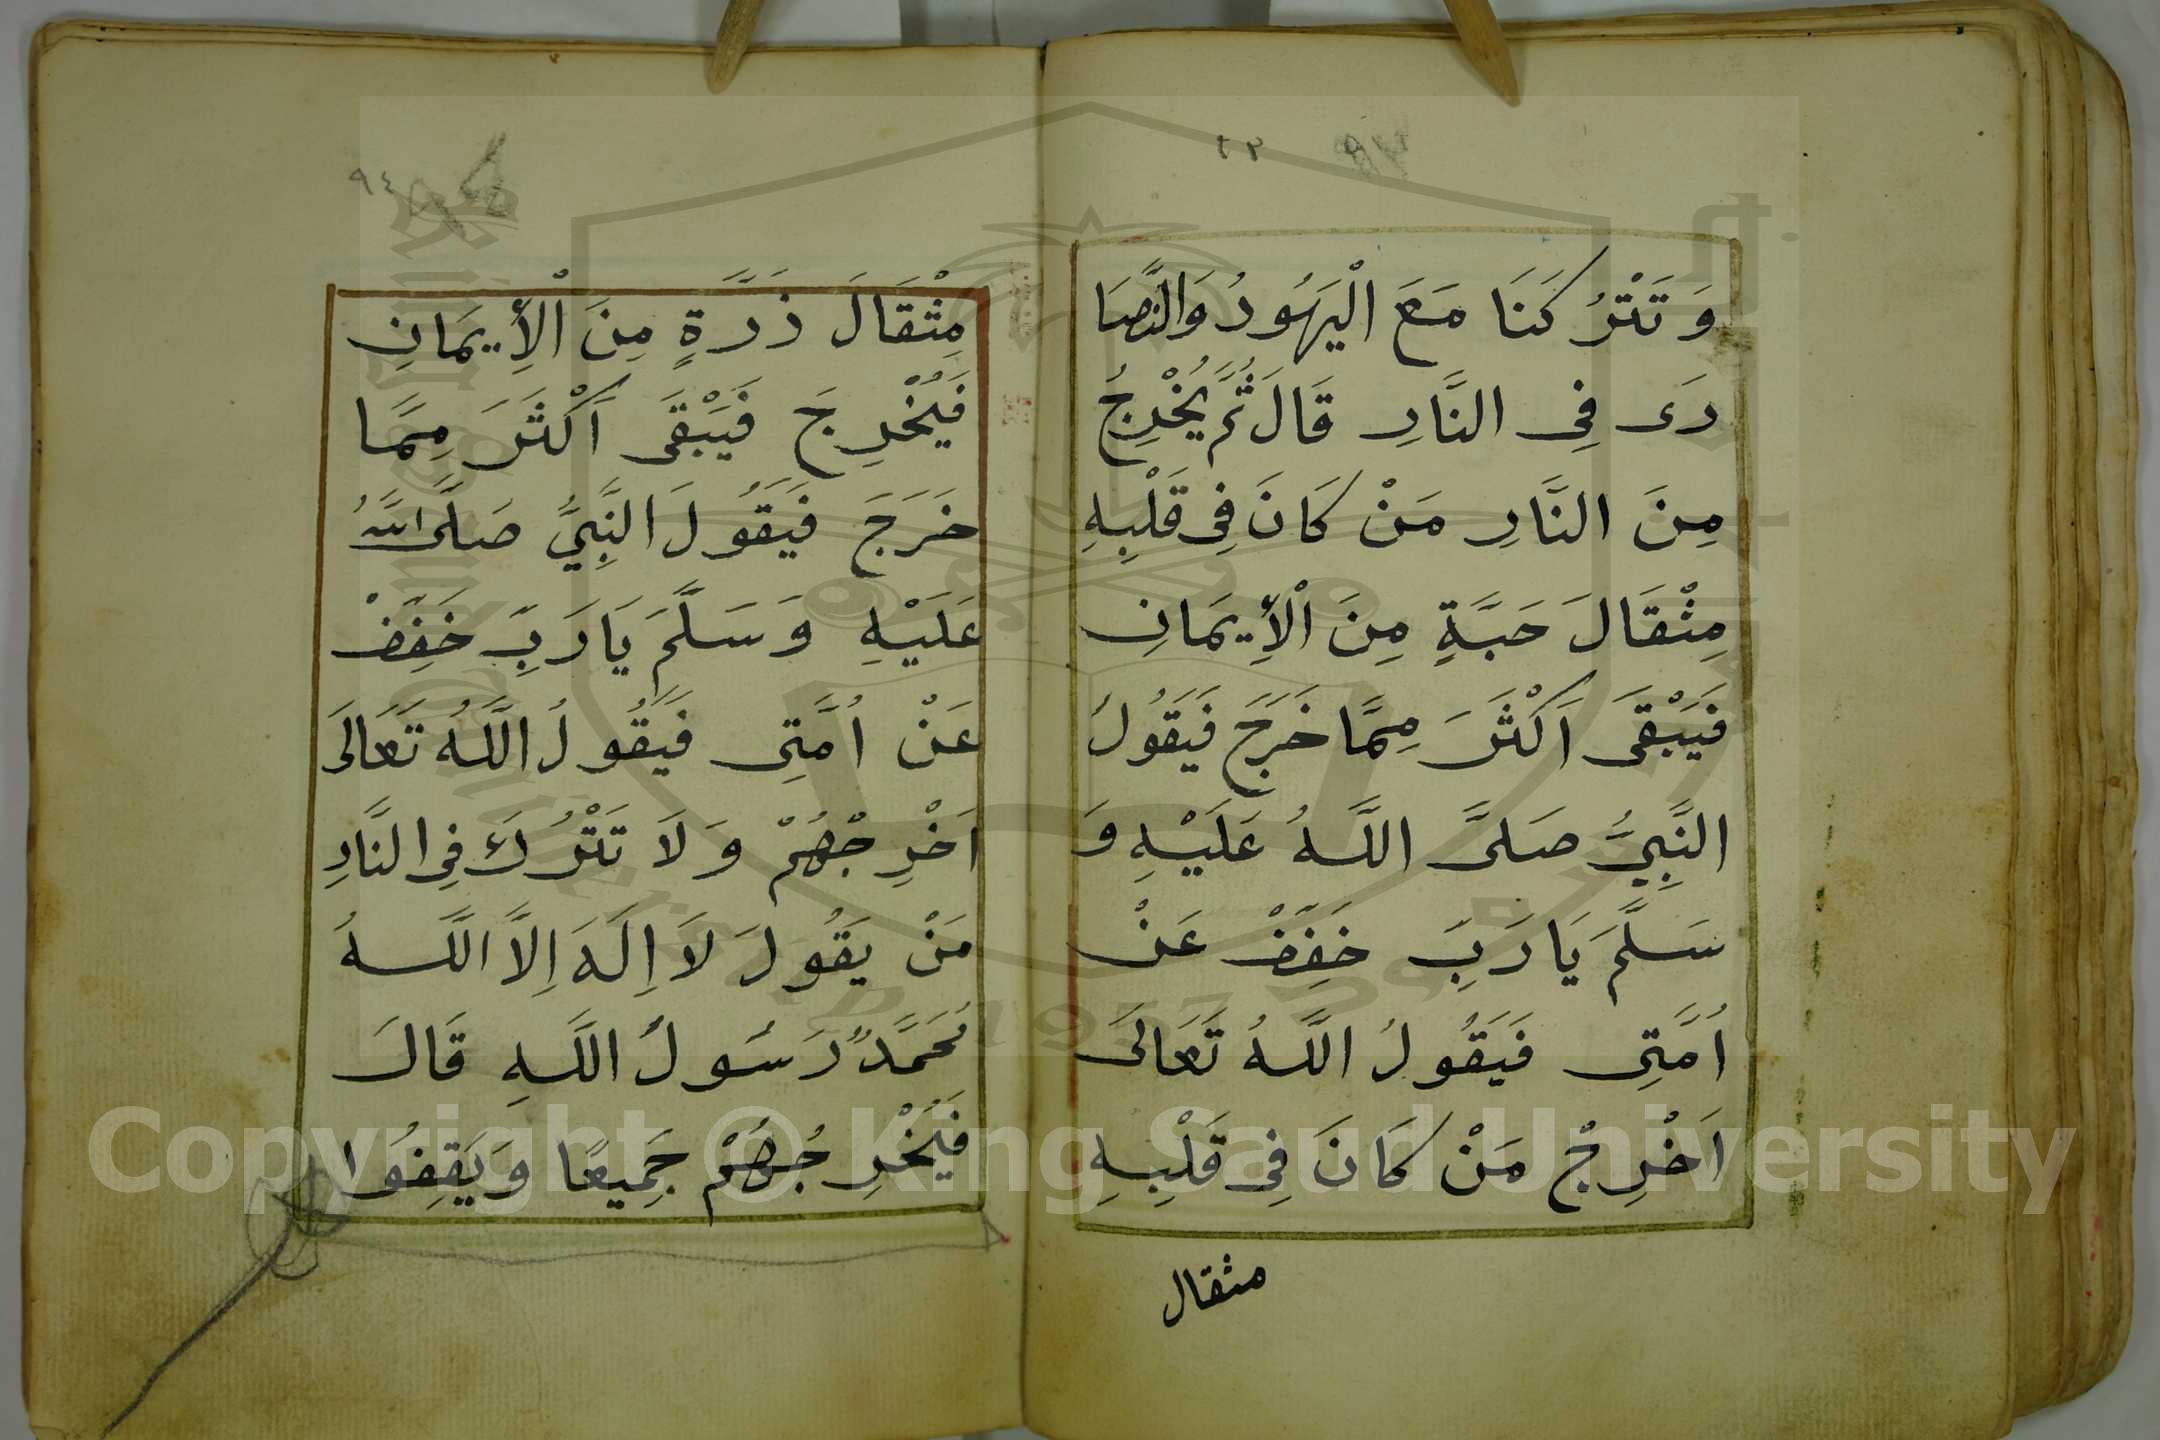 وَتَتْرُكَنَا مَعَ الْيَهُودُ وَالنَّصَا
رَى فِى النَّارِ قَالَ ثُمَّ يُخْرِجُ
مِنَ النَّارِ مَنْ كَانَ فِى قَلْبِهِ
مِثْقَالَ حَبَّةٍ مِنَ الْأِيمَانِ
فَيَبْقَى اَكْثَرَ مِمَّا خَرَجَ فَيَقُولُ
النَّبِيُّ صَلَّى اللَّهُ عَلَيْهِ وَ
سَلَّمَ يَا رَبِّ خَفِّفْ عَنْ
اُمَّتِى فَيَقُولُ اللَّهُ تَعَالَى
اَخْرِجْ مَنْ كَانَ فِى قَلْبِهِ
مثقال
٩٤
مِثْقَالَ ذَرَّةٍ مِنَ الْأِيمَانِ
فَيُخْرِجَ فَيَبْقَى اَكْثَرَ مِمَّا
خَرَجَ فَيَقُولَ النَّبِيُّ صَلَّى اللَّهُ
عَلَيْهِ وَسَلَّمَ يَا رَبِّ خَفِّفْ
عَنْ اُمَّتِى فَيَقُولُ اللَّهُ تَعَالَى
اَخْرِجْهُمْ وَلَا تَتْرُكَ فِى النَّارِ
مَنْ يَقُولَ لَا اِلَهَ اِلَّا اللَّهُ
مُحَمَّدٌ رَسُولُ اللَّهِ قَالَ
فَيُخْرِجُهُمْ جَمِيعًا وَيَقِفُوا
Copyright © King Saud University